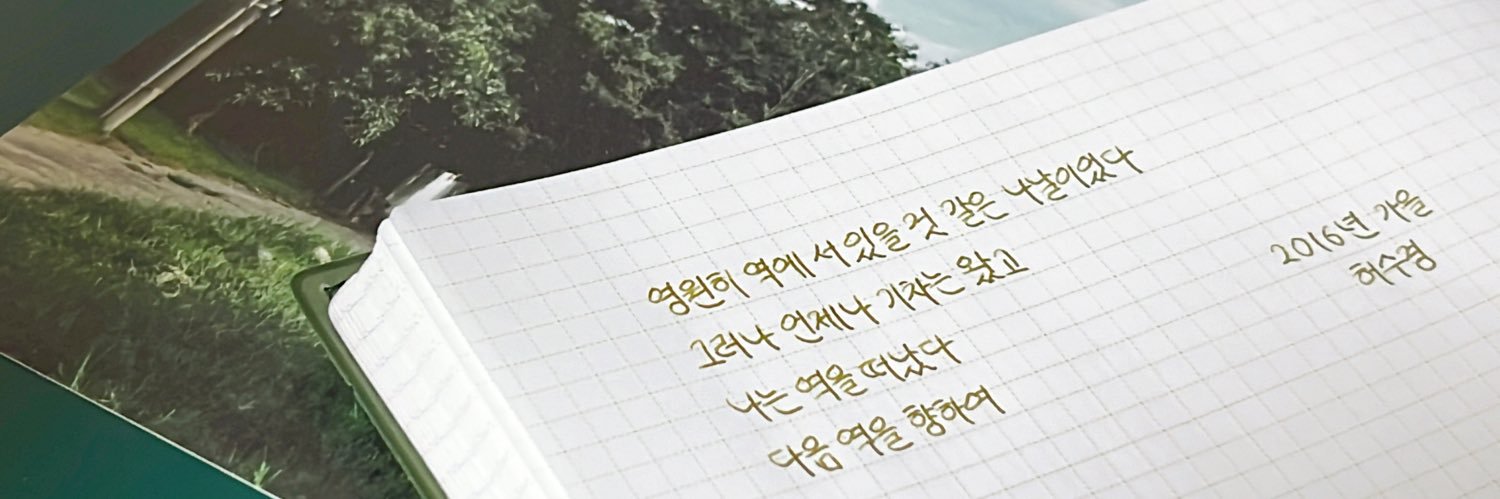 영원히 역에 서 있을 것 같은 나날이었다
그러나 언제나 기차는 왔고
나는 역을 떠났다
다음 역을 향하여
2016년 가을
허수경